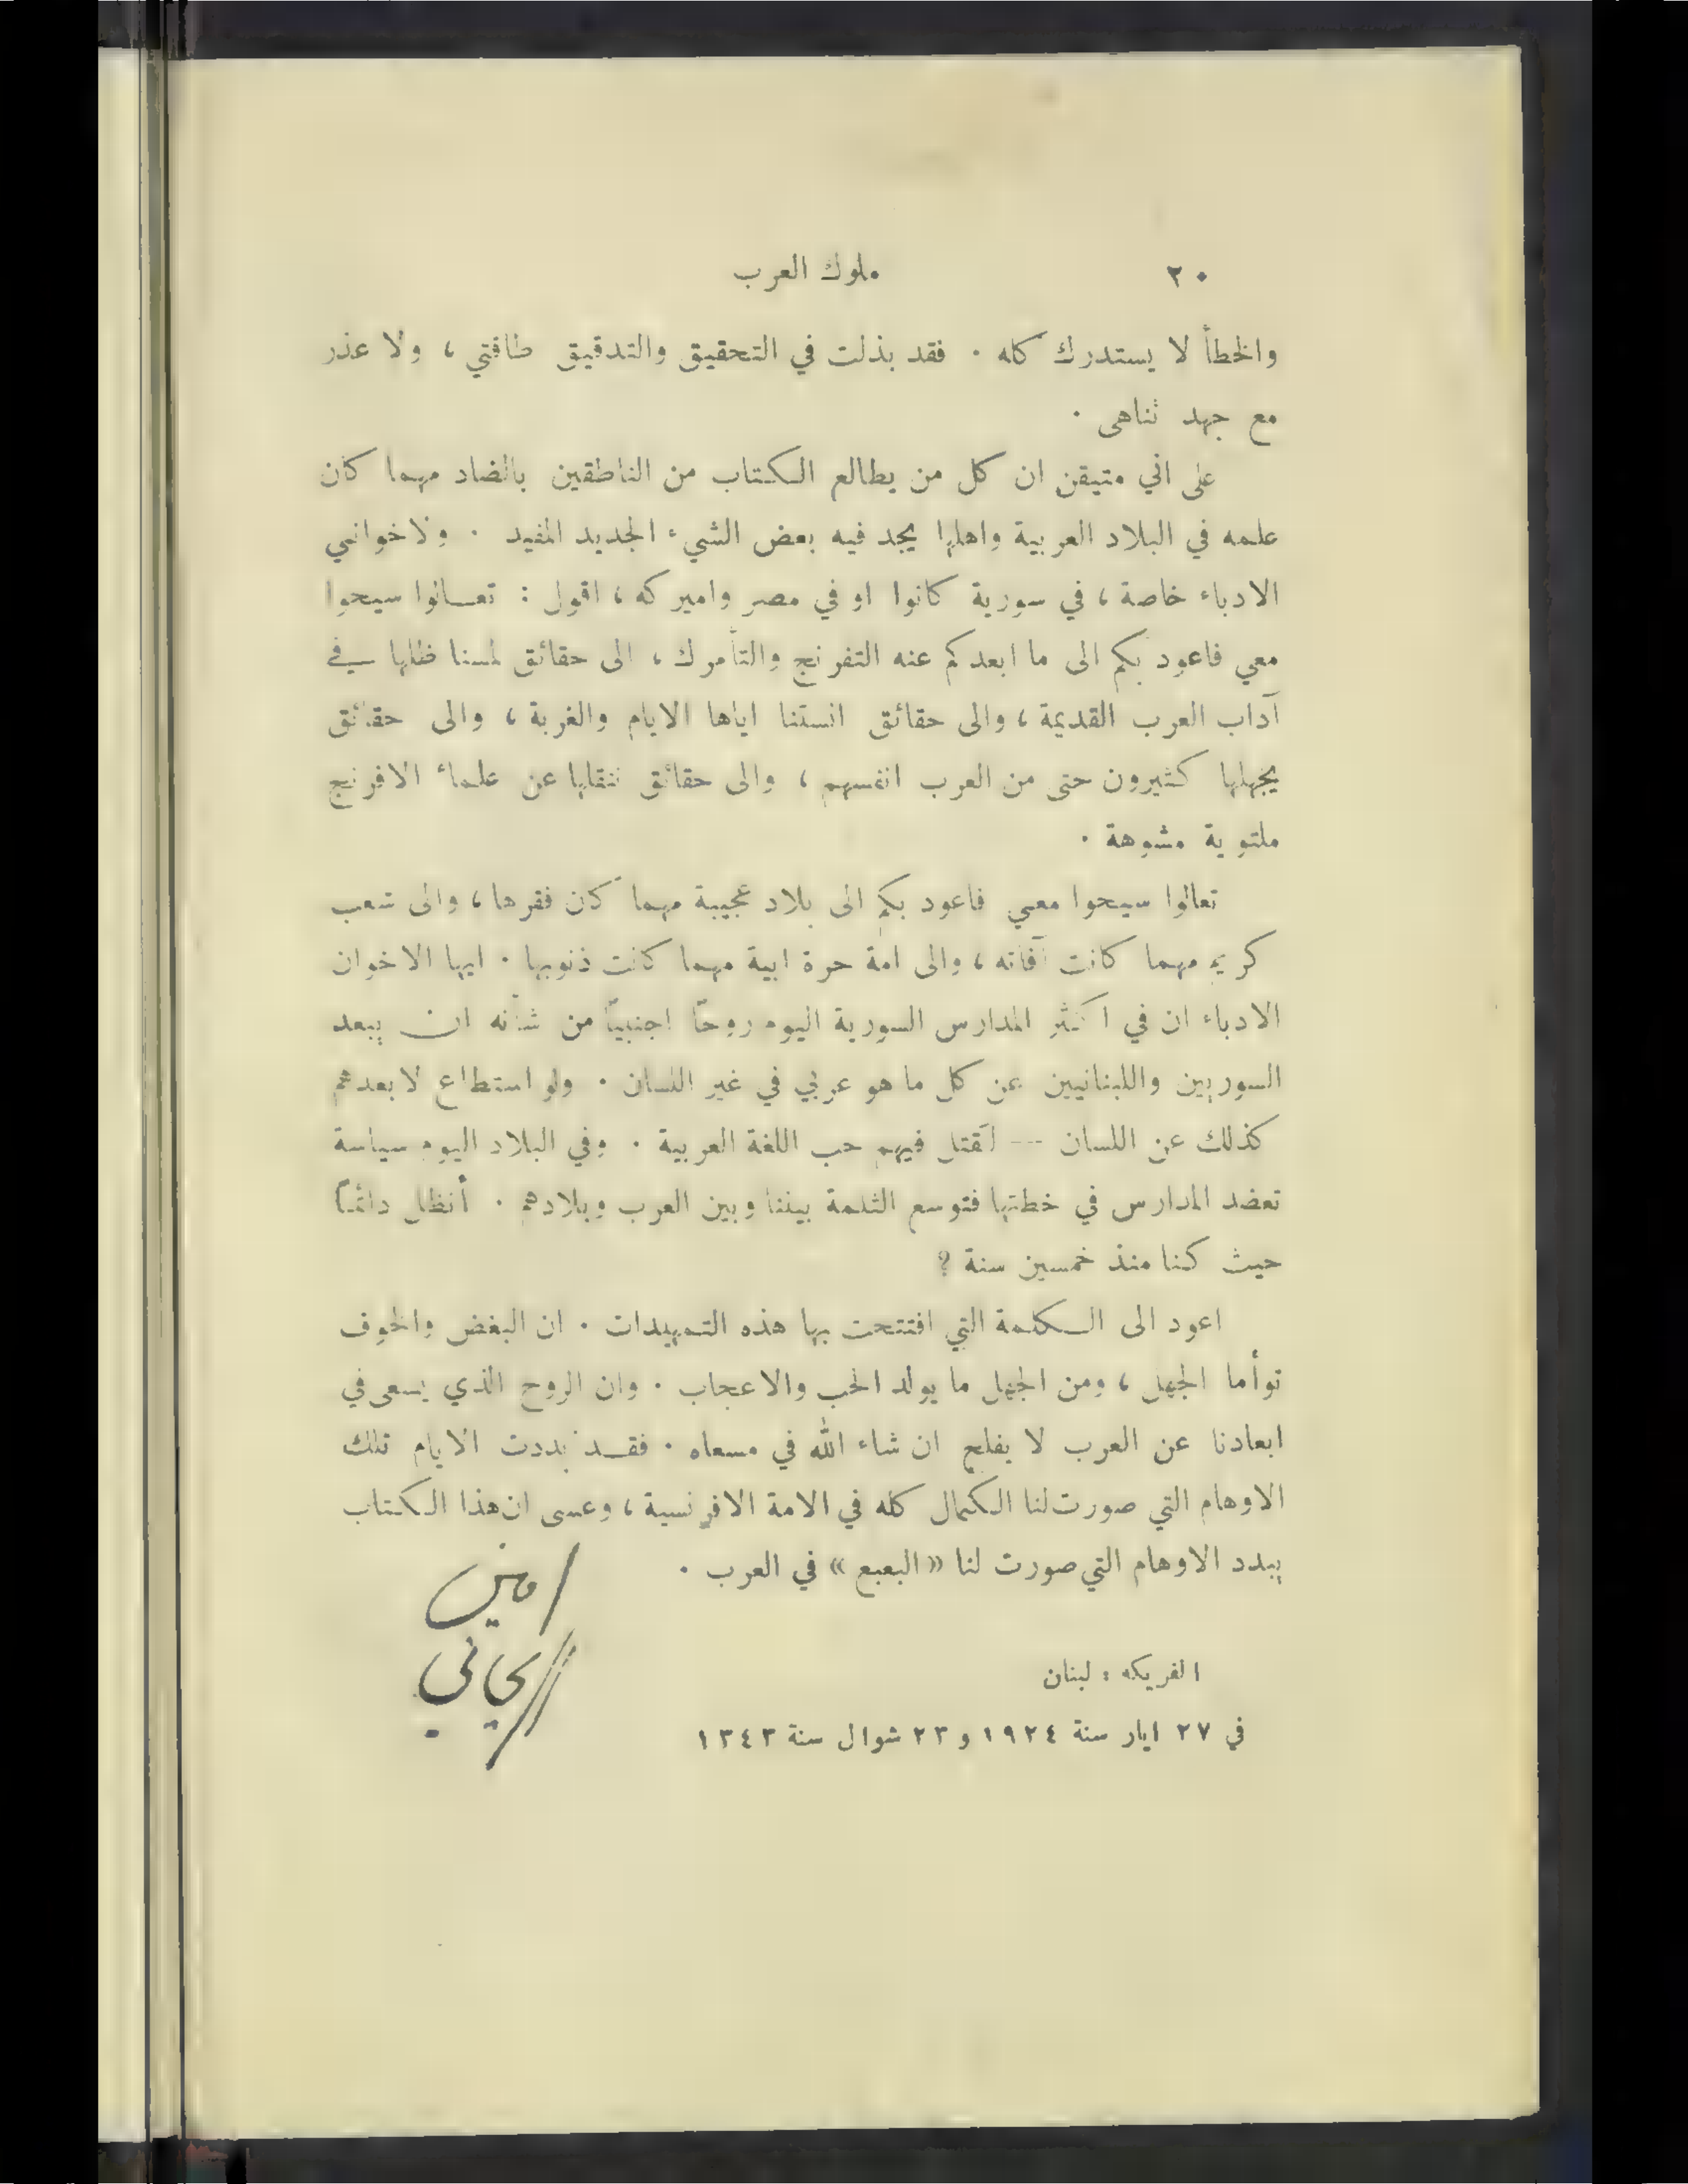 ٢٠ ملوك العرب
والخطأ لا يستدرك كله . فقد بذلت في التحقيق والتدقيق طاقتي ، ولا عذر
مع جهد تناهى .
على اني متيقن ان كل من يطالع الكتاب من الناطقين بالضاد مهما كان
علمه في البلاد العربية واهلها يجد فيه بعض الشيء الجديد المفيد . ولاخواني
الادباء خاصة ، في سورية كانوا او في مصر واميركه ، اقول : تعالوا سيحوا
معي فاعود بكم الى ما ابعدكم عنه التفرنج والتأمرك ، الى حقائق لمسنا ظلها في
آداب العرب القديمة ، والى حقائق انستنا اياها الايام والغربة ، والى حقائق
يجهلها كثيرون حتى من العرب انفسهم ، والى حقائق ننقلها عن علماء الافرنج
ملتوية مشوهة .
تعالوا سيحوا معي فاعود بكم الى بلاد عجيبة مهما كان فقرها ، والى شعب
كريم مهما كانت آفاته ، والى امة حرة ابية مهما كانت ذنوبها . ايها الاخوان
الادباء ان في اكثر المدارس السورية اليوم روحًا اجنبيًا من شأنه ان يبعد
السوريين واللبنانيين عن كل ما هو عربي في غير اللسان . ولو استطاع لابعدهم
كذلك عن اللسان -- لَقتل فيهم حب اللغة العربية . وفي البلاد اليوم سياسة
تعضد المدارس في خطتها فتوسع الثلمة بيننا وبين العرب وبلادهم . أنظل دائمًا
حيث كنا منذ خمسين سنة ؟
اعود الى الكلمة التي افتتحت بها هذه التمهيدات . ان البغض والخوف
توأما الجهل ، ومن الجهل ما يولد الحب والاعجاب . وان الروح الذي يسعى في
ابعادنا عن العرب لا يفلح ان شاء الله في مسعاه . فقد بددت الايام تلك
الاوهام التي صورت لنا الكمال كله في الامة الافرنسية ، وعسى ان هذا الكتاب
يبدد الاوهام التي صورت لنا « البعبع » في العرب .
امين
الريحاني
الفريكه : لبنان
في ٢٧ ايار سنة ١٩٢٤ و ٢٣ شوال سنة ١٣٤٣